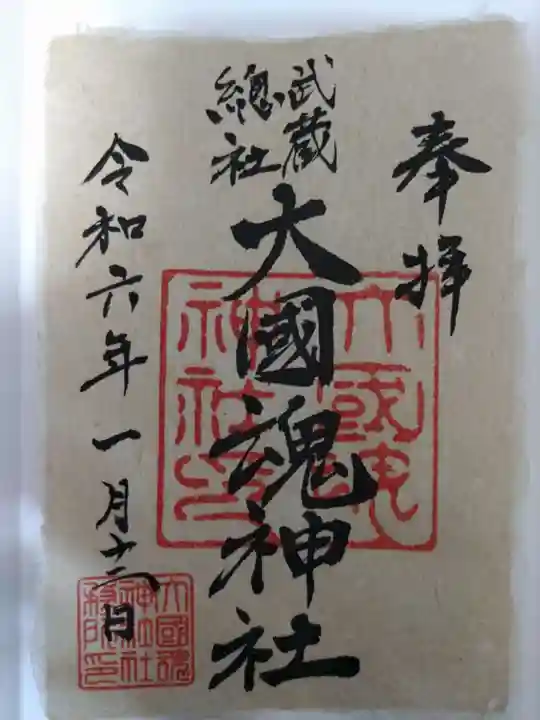 奉拝
武蔵
總社
大國魂神社
令和六年一月十二日
大國魂
神社印
大國魂
神社